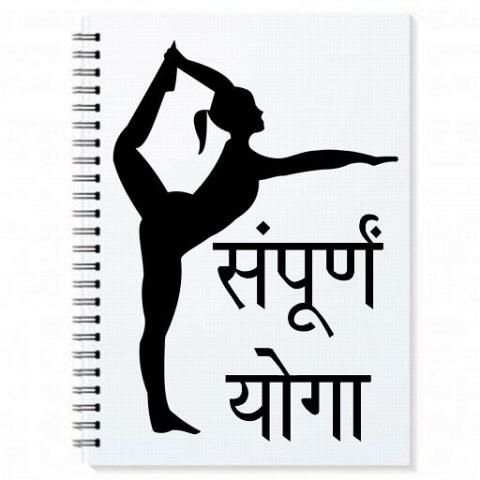 संपूर्णं
योगा